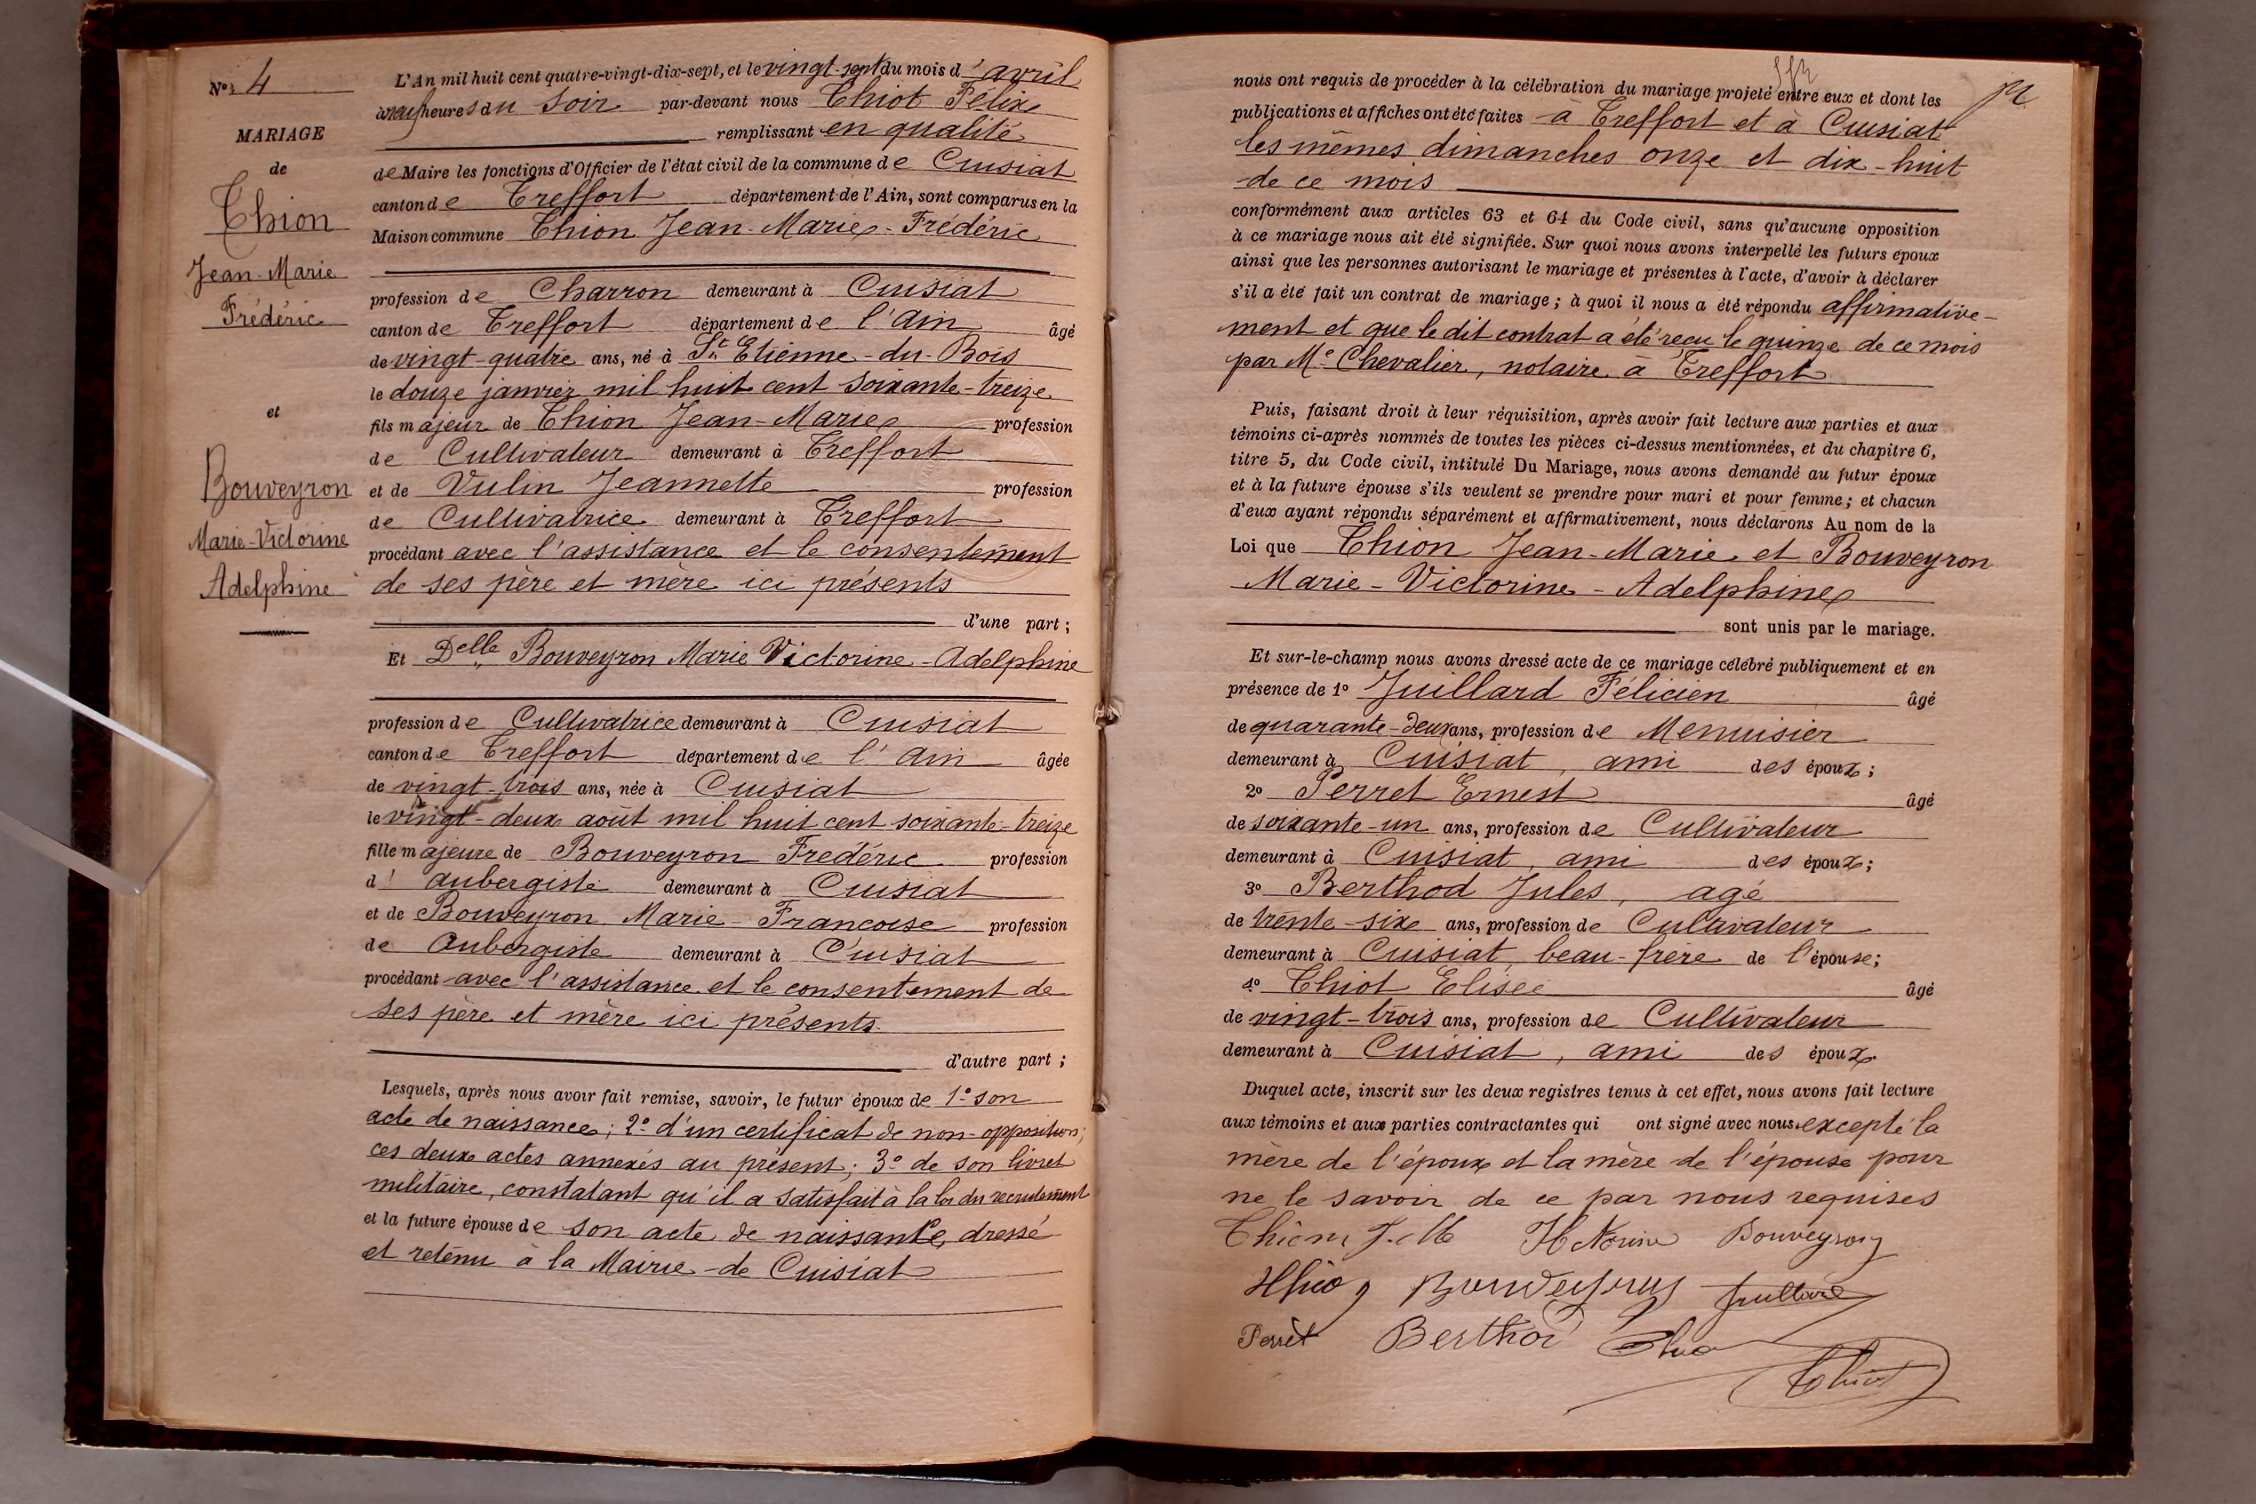 No 4
MARIAGE
de
Thion
Jean-Marie
Frédéric
et
Bouveyron
Marie-Victorine
Adelphine
L'An mil huit cent quatre-vingt-dix-sept, et le vingt-sept du mois d'avril
à neuf heures du soir par-devant nous Thiot Félix
remplissant en qualité
de Maire les fonctions d'Officier de l'état civil de la commune de Cuisiat
canton de Treffort département de l'Ain, sont comparus en la
Maison commune Thion Jean-Marie-Frédéric
profession de Charron demeurant à Cuisiat
canton de Treffort département de l'Ain âgé
de vingt-quatre ans, né à St Etienne-du-Bois
le douze janvier mil huit cent soixante-treize
fils majeur de Thion Jean-Marie profession
de Cultivateur demeurant à Treffort
et de Vulin Jeannette profession
de Cultivatrice demeurant à Treffort
procédant avec l'assistance et le consentement
de ses père et mère ici présents
d'une part ;
Et Delle Bouveyron Marie Victorine-Adelphine
profession de Cultivatrice demeurant à Cuisiat
canton de Treffort département de l'Ain âgée
de vingt-trois ans, née à Cuisiat
le vingt-deux août mil huit cent soixante-treize
fille majeure de Bouveyron Frédéric profession
d'aubergiste demeurant à Cuisiat
et de Bouveyron Marie-Francoise profession
de Aubergiste demeurant à Cuisiat
procédant avec l'assistance et le consentement de
ses père et mère ici présents
d'autre part ;
Lesquels, après nous avoir fait remise, savoir, le futur époux de 1º son
acte de naissance ; 2º d'un certificat de non-opposition ;
ces deux actes annexés au présent ; 3º de son livret
militaire, constatant qu'il a satisfait à la loi du recrutement
et la future épouse de son acte de naissance, dressé
et retenu à la Mairie de Cuisiat
nous ont requis de procéder à la célébration du mariage projeté entre eux et dont les
publications et affiches ont été faites à Treffort et à Cuisiat
les mêmes dimanches onze et dix-huit
de ce mois
conformément aux articles 63 et 64 du Code civil, sans qu'aucune opposition
à ce mariage nous ait été signifiée. Sur quoi nous avons interpellé les futurs époux
ainsi que les personnes autorisant le mariage et présentes à l'acte, d'avoir à déclarer
s'il a été fait un contrat de mariage ; à quoi il nous a été répondu affirmative-
ment et que le dit contrat a été reçu le quinze de ce mois
par Me Chevalier, notaire à Treffort
Puis, faisant droit à leur réquisition, après avoir fait lecture aux parties et aux
témoins ci-après nommés de toutes les pièces ci-dessus mentionnées, et du chapitre 6,
titre 5, du Code civil, intitulé Du Mariage, nous avons demandé au futur époux
et à la future épouse s'ils veulent se prendre pour mari et pour femme ; et chacun
d'eux ayant répondu séparément et affirmativement, nous déclarons Au nom de la
Loi que Thion Jean-Marie et Bouveyron
Marie-Victorine-Adelphine
sont unis par le mariage.
Et sur-le-champ nous avons dressé acte de ce mariage célébré publiquement et en
présence de 1º Juillard Félicien âgé
de quarante-deux ans, profession de Menuisier
demeurant à Cuisiat, ami des époux ;
2º Perret Ernest âgé
de soixante-un ans, profession de Cultivateur
demeurant à Cuisiat, ami des époux ;
3º Berthod Jules, agé
de trente-six ans, profession de Cultivateur
demeurant à Cuisiat, beau-frère de l'épouse ;
4º Thiot Elisée âgé
de vingt-trois ans, profession de Cultivateur
demeurant à Cuisiat, ami des époux.
Duquel acte, inscrit sur les deux registres tenus à cet effet, nous avons fait lecture
aux témoins et aux parties contractantes qui ont signé avec nous excepté la
mère de l'époux et la mère de l'épouse pour
ne le savoir de ce par nous requises
Thion J. M Bouveyron
Bouveyron Juillard
Perret Berthod
Thiot